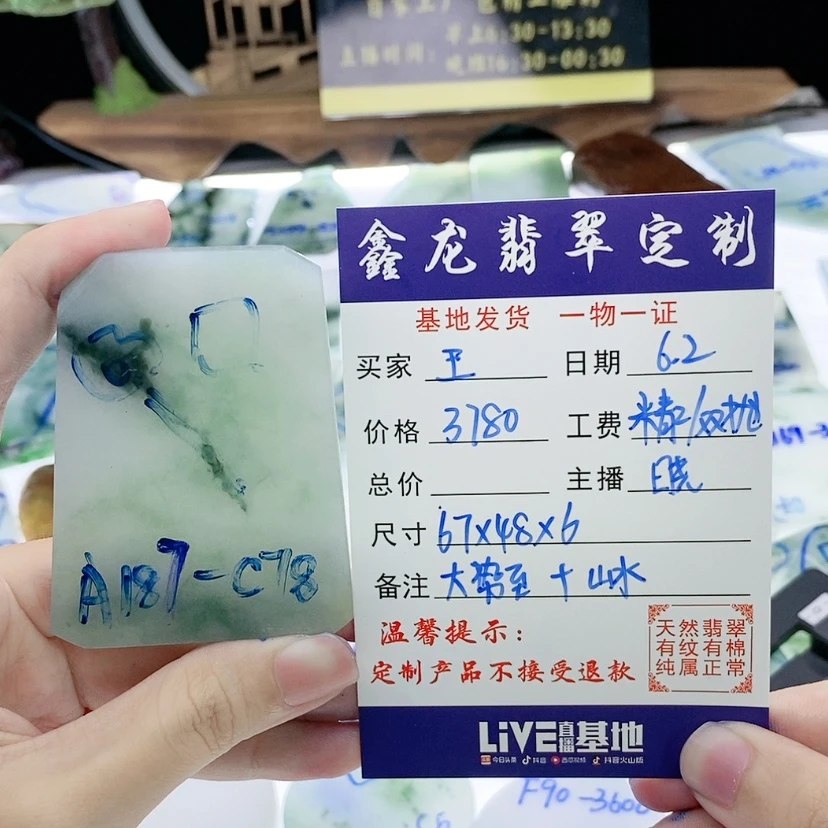 早上6:30-13:30
主播时间：晚班16:30-00:30
鑫龙翡翠定制
基地发货 一物一证
买家 王 日期 6.2
价格 3780 工费 精/双抛
总价 主播
尺寸 67×48×6
备注 大势至 + 山水
温馨提示：
定制产品不接受退款
天然翡翠
有纹有棉
纯属正常
LiVE直播基地
今日头条 抖音 西瓜视频 抖音火山版
A187-C78
F90-3600